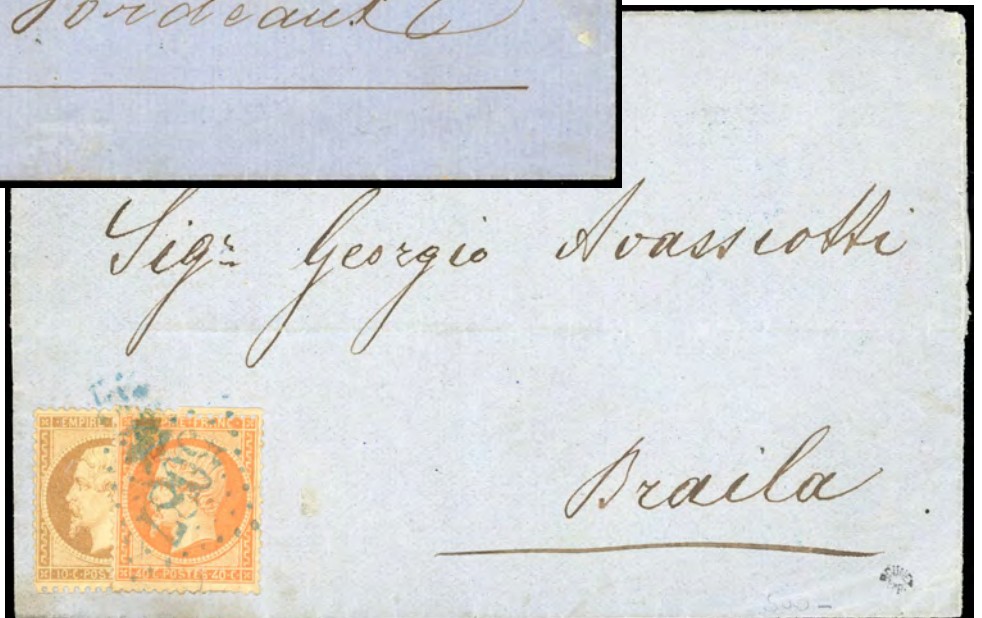 Bordeaux
Sigr. Georgio Avassiotti
Braila
EMPIRE
PIRE FRANC
10·C·POST
40·C·POSTES·40·C
500 -